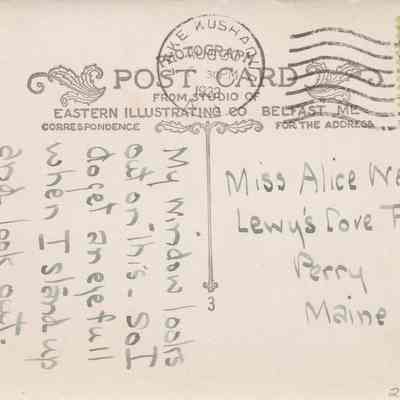 LAKE KUSHAQUA
N.Y.
AUG
30
PM
1933
PHOTOGRAPH
POST CARD
FROM STUDIO OF
EASTERN ILLUSTRATING CO BELFAST ME
CORRESPONDENCE
FOR THE ADDRESS
My window looks
out on this - So I
do get an eye full
when I stand up
and look out.
Miss Alice
Lewy's Cove
Perry
Maine
3
2